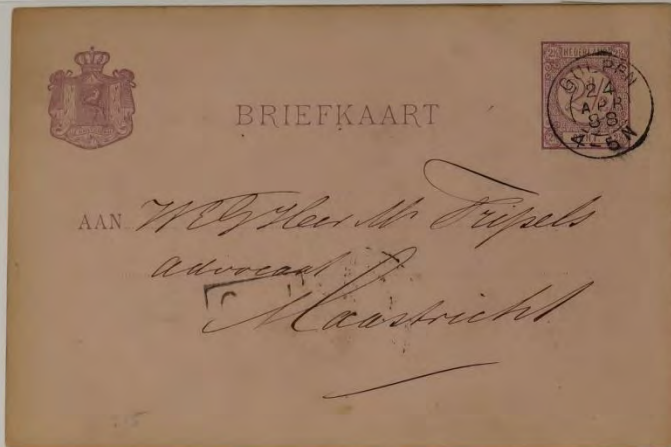 BRIEFKAART
NEDERLAND
GULPEN
24
APR
88
4-5N
AAN W E G Heer Mr Tripels
advocaat
Maastricht